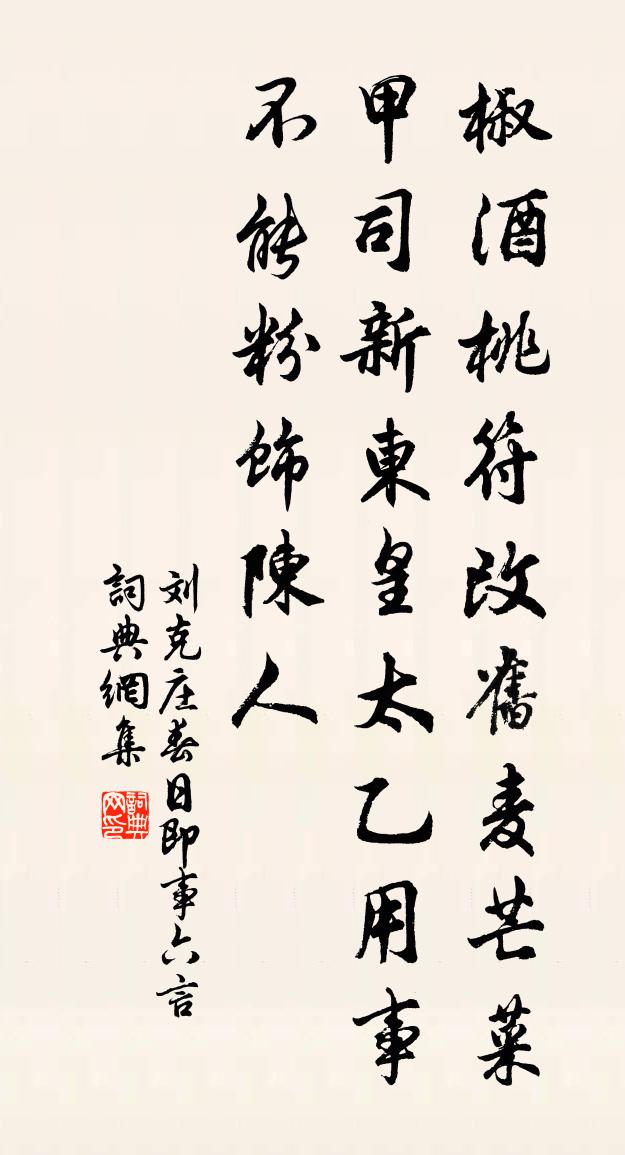 椒酒桃符改舊麦芒菜
甲司新東皇太乙用事
不能粉飾陳人
刘克庄春日即事六言
詞典網集
詞典网印